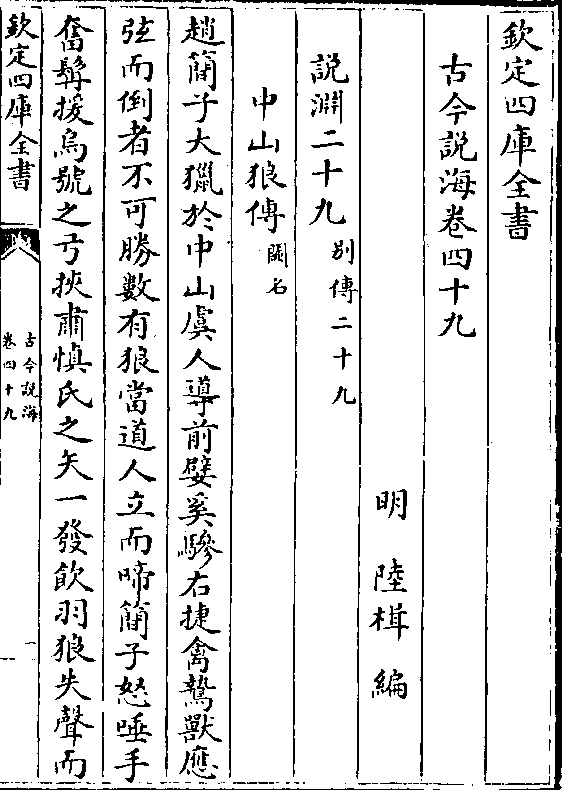 欽定四庫全書
古今説海卷四十九
明 陸楫 編
説淵二十九 别傳二十九
中山狼傳 闕名
趙簡子大獵於中山虞人導前嬖奚驂右捷禽鷙獸應
弦而倒者不可勝數有狼當道人立而啼簡子怒唾手
奮髯援烏號之弓挾肅慎氏之矢一發飲羽狼失聲而
欽定四庫全書
古今説海
卷四十九
一